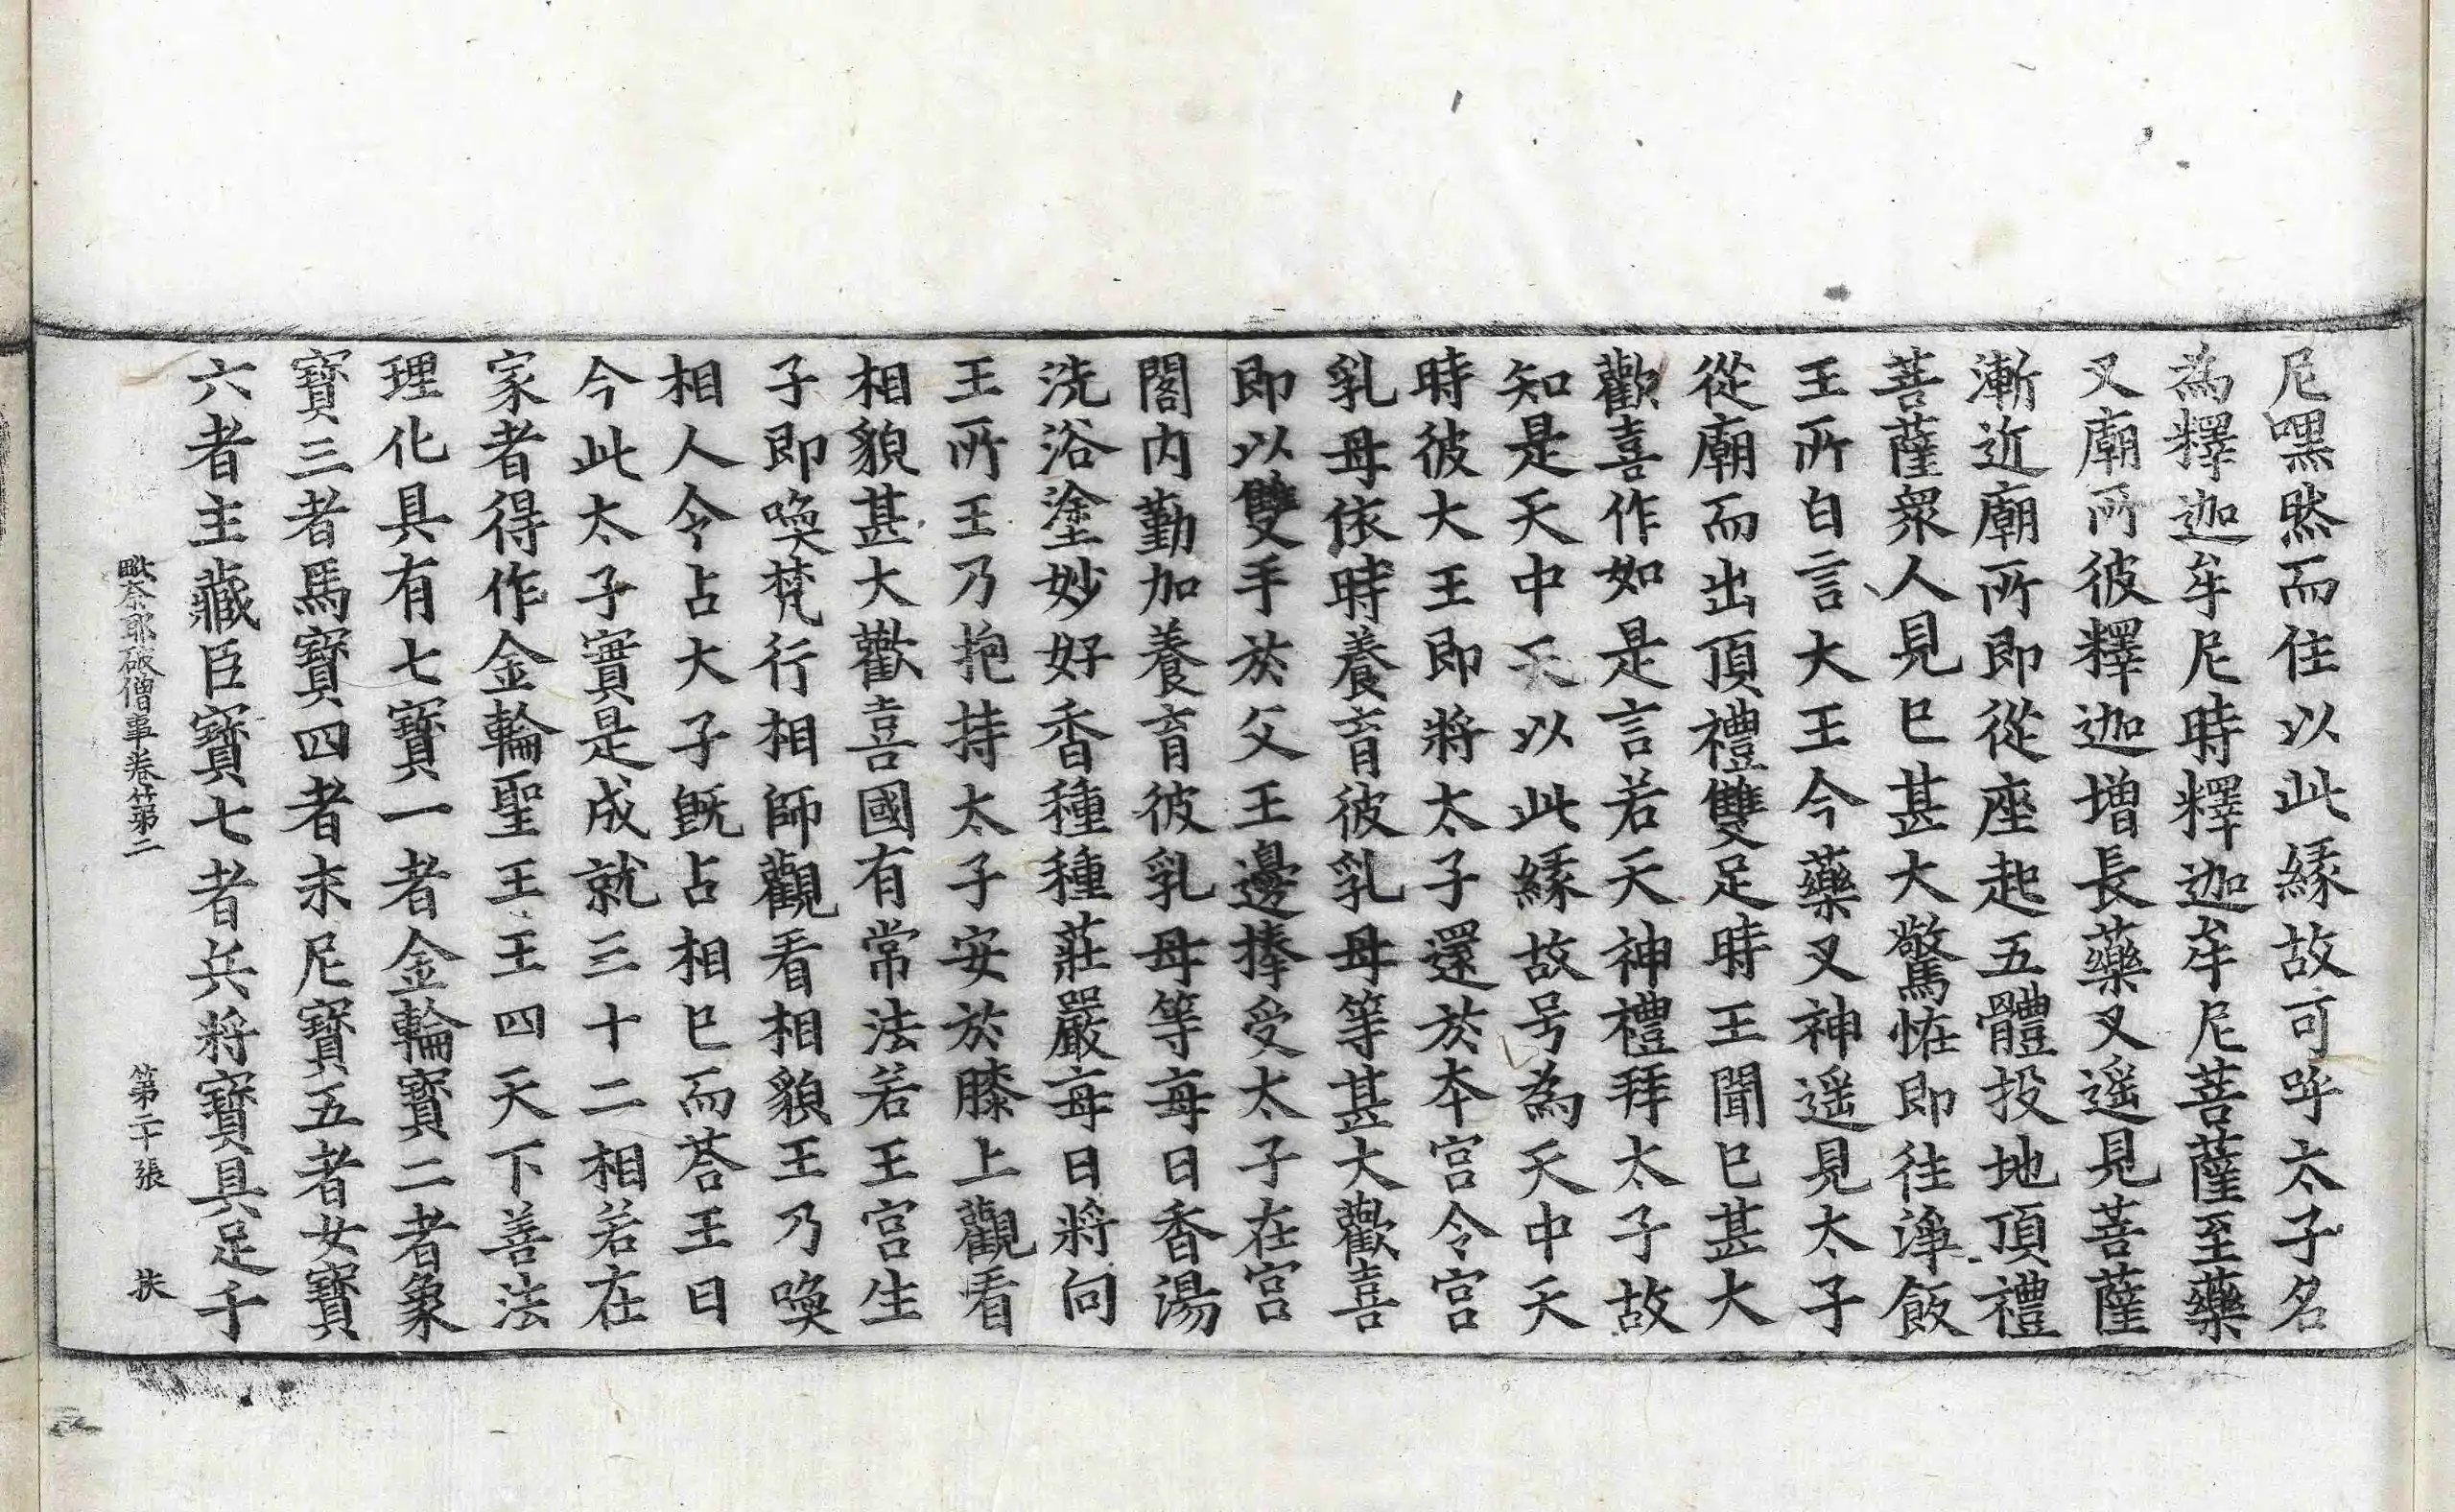 尼嘿然而住以此緣故可呼太子名
為釋迦牟尼時釋迦牟尼菩薩至藥
叉廟所彼釋迦增長藥叉遥見菩薩
漸近廟所即從座起五體投地頂禮
菩薩衆人見已甚大驚恠即往淨飯
王所白言大王今藥叉神遥見太子
從廟而出頂禮雙足時王聞已甚大
歡喜作如是言若天神禮拜太子故
知是天中天以此緣故号為天中天
時彼大王即將太子還於本宮令宮
乳母依時養育彼乳母等甚大歡喜
即以雙手於父王邊捧受太子在宮
閣内勤加養育彼乳母等每日香湯
洗浴塗妙好香種種莊嚴每日將向
王所王乃抱持太子安於膝上觀看
相貌甚大歡喜國有常法若王宮生
子即喚梵行相師觀看相貌王乃喚
相人令占大子旣占相已而荅王曰
今此太子實是成就三十二相若在
家者得作金輪聖王王四天下善法
理化具有七寶一者金輪寶二者象
寶三者馬寶四者末尼寶五者女寶
六者主藏臣寶七者兵將寶具足千
毗奈耶破僧事卷第二 第二十張 扶